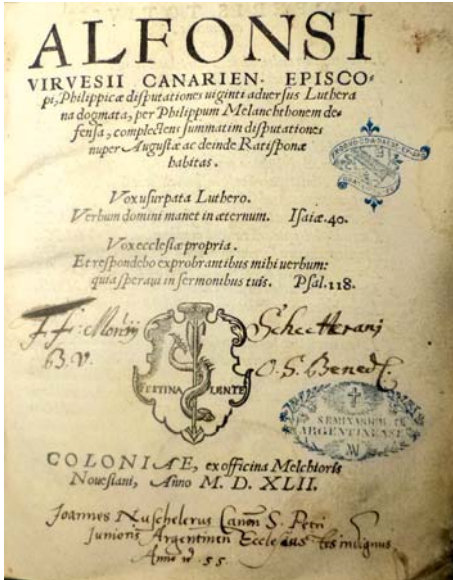 ALFONSI
VIRVESII CANARIEN. EPISCO-
pi, Philippicæ disputationes uiginti aduersus Luthera
na dogmata, per Philippum Melanchthonem de-
fensa, complectens summatim disputationes
nuper Augustæ ac deinde Ratisponæ
habitas.
Vox usurpata Luthero.
Verbum domini manet in æternum. Isaiæ. 40.
Vox ecclesiæ propria.
Et respondebo exprobrantibus mihi uerbum:
quia speraui in sermonibus tuis. Psal. 118.
B. V.
O. S. Bened
FESTINA LENTE
SEMINARIUM
ARGENTINENSE
COLONIAE, ex officina Melchioris
Nouesiani, Anno M. D. XLII.
Joannes Nuschelerus Canon S. Petri
Junioris Argentinen
Anno 55.